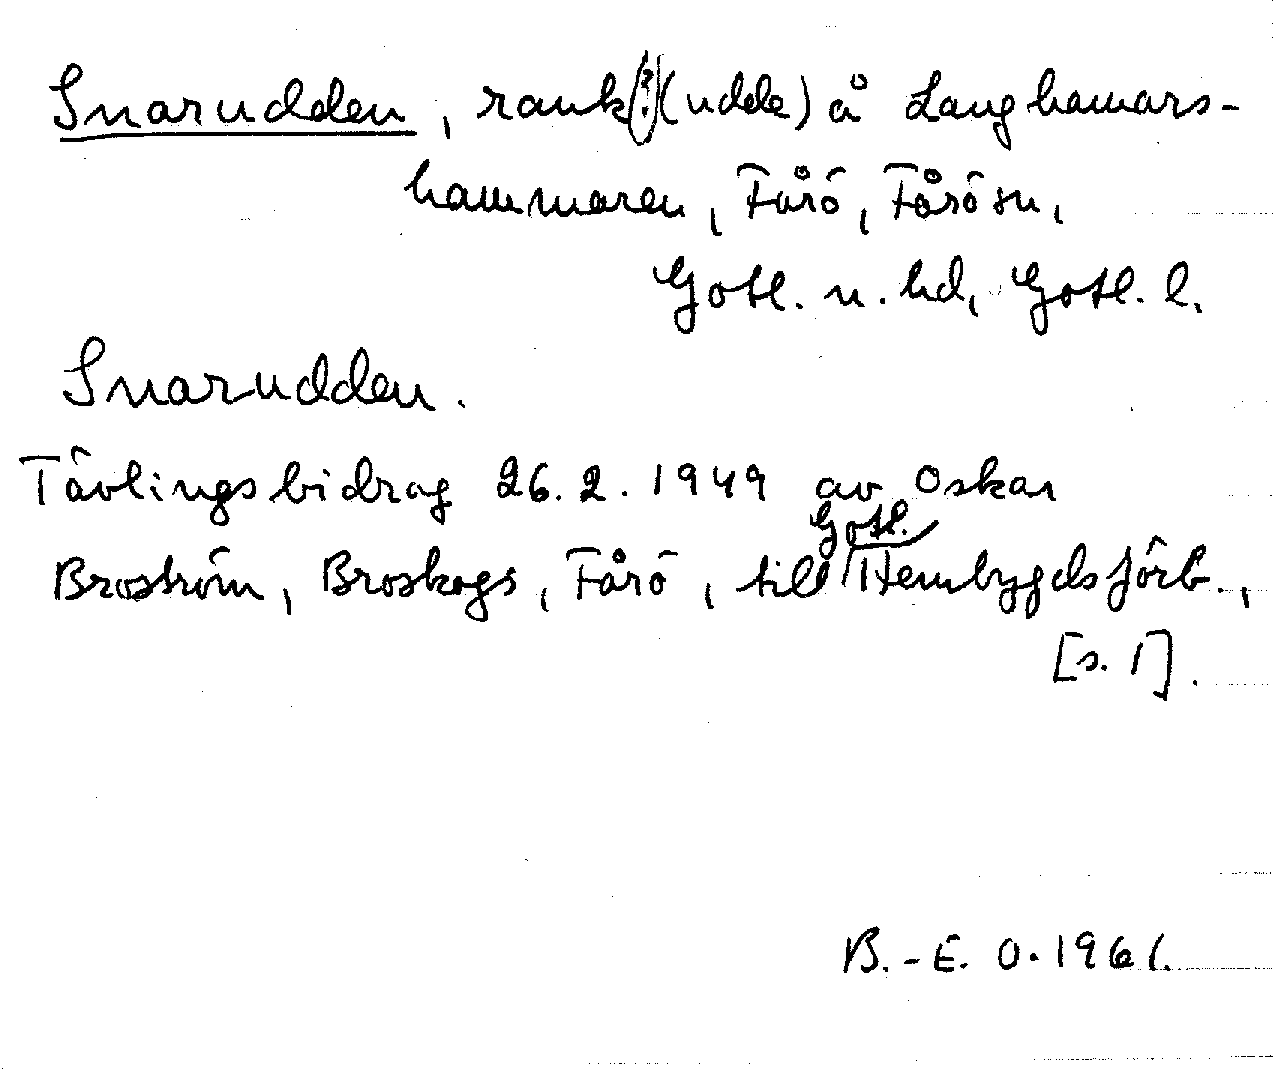 Snarudden, rauk(?)(udde) å Langhamars-
hammaren, Fårö, Fårösn,
Gotl. n. hd, Gotl. l.
Snarudden.
Tävlingsbidrag 26.2.1949 av Oskar
Broström, Broskogs, Fårö, till Gotl. Hembygdsförb.,
[s. 1].
B.-E. O. 1961.